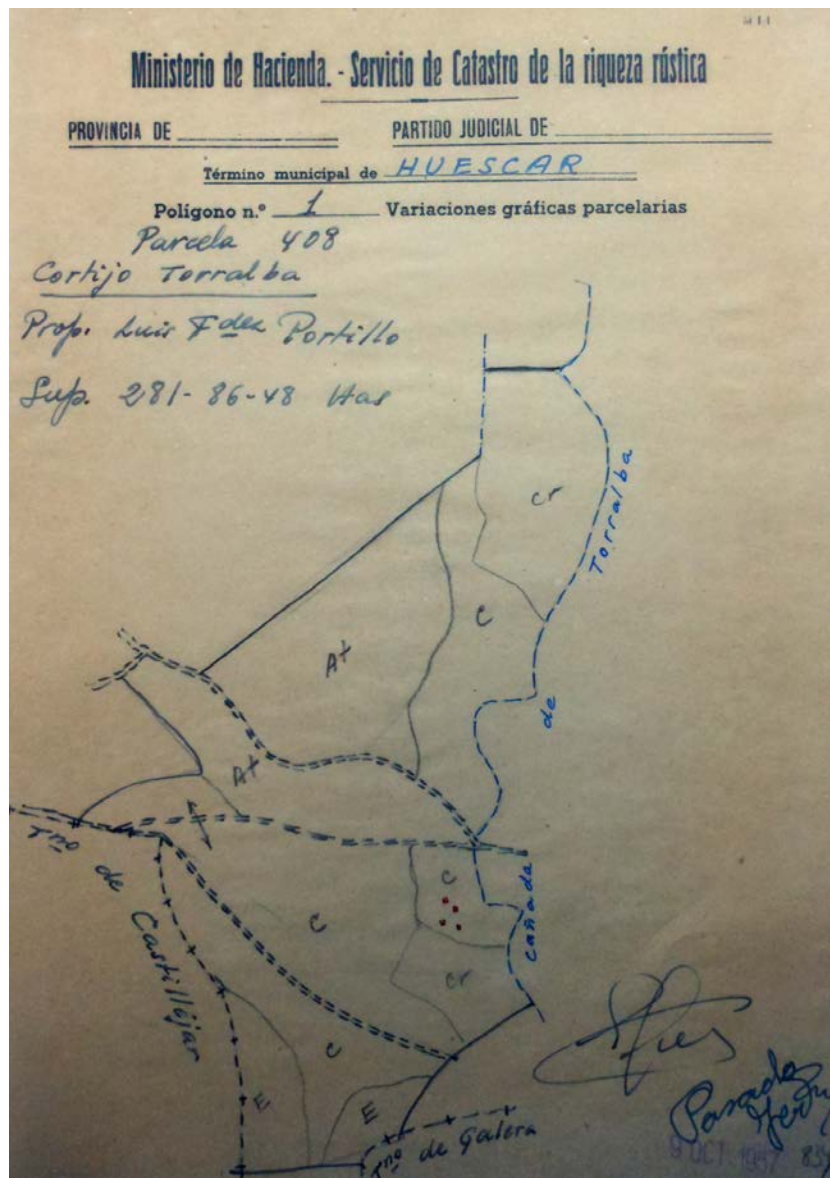 Ministerio de Hacienda. - Servicio de Catastro de la riqueza rústica
PROVINCIA DE PARTIDO JUDICIAL DE
Término municipal de HUESCAR
Polígono n.º 1 Variaciones gráficas parcelarias
Parcela 408
Cortijo Torralba
Prop. Luis Fdez Portillo
Sup. 281-86-48 Has
cr
Torralba
C
At
de
At
Tno de Castilléjar
C
cañada
C
cr
C
E
E
Tno de Galera
Pasado
9 OCT 1957